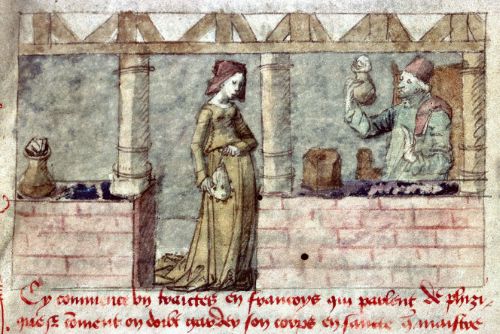 Cy commence un traictes en francoys qui parlent de pluzi
que sr coment on doibt garder son corps en sancte maistre